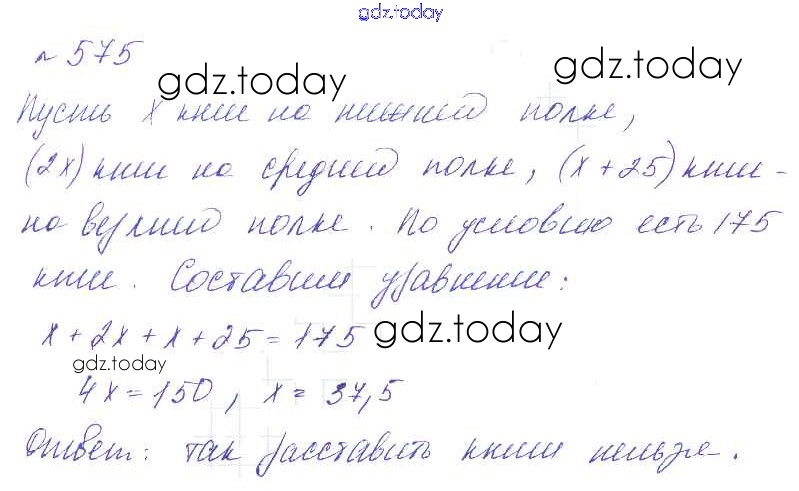 gdz.today
№ 575
gdz.today
Пусть x книг на нижней полке,
(2x) книг на средней полке, (x + 25) книг -
на верхней полке. По условию есть 175
книг. Составим уравнение:
x + 2x + x + 25 = 175
gdz.today
gdz.today
4x = 150, x = 37,5
Ответ: так расставить книги нельзя.